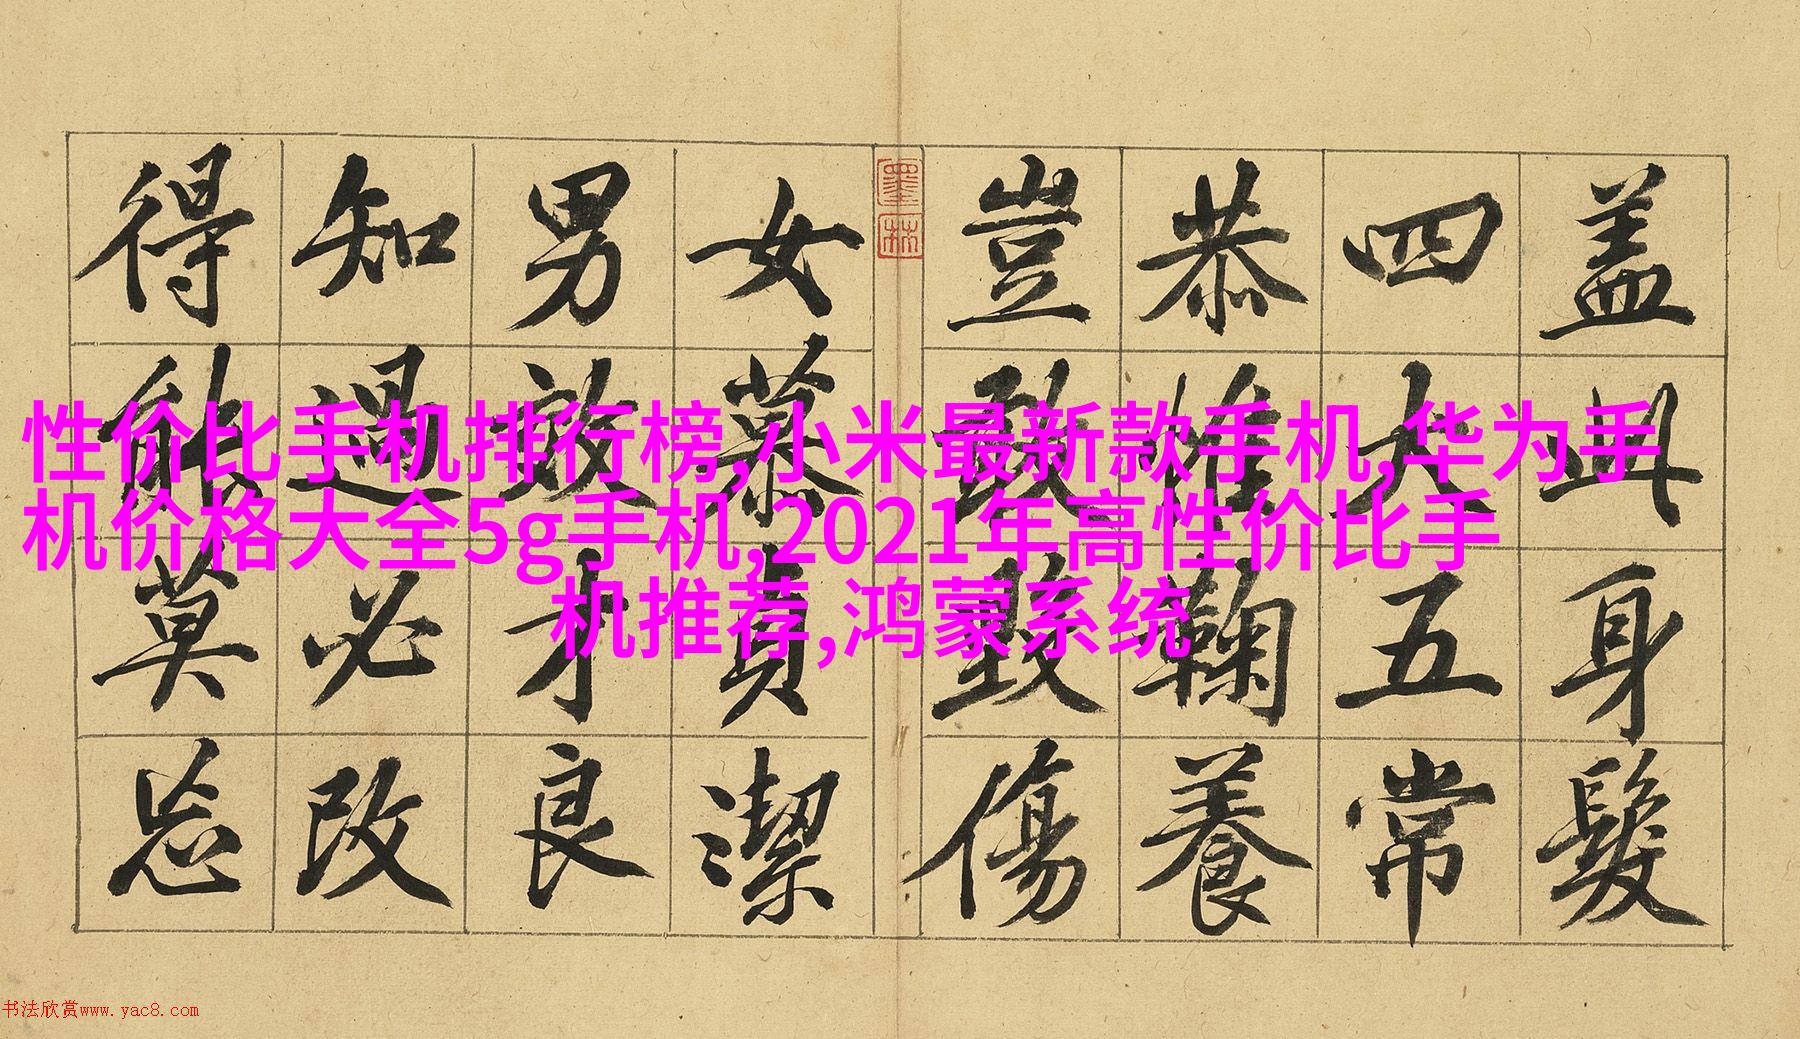 盖此身髮
四大五常
恭惟鞠養
豈敢毀傷
墨林
女慕貞潔
男效才良
知過必改
得能莫忘
性价比手机排行榜,小米最新款手机,华为手
机价格大全5g手机,2021年高性价比手
机推荐,鸿蒙系统
书法欣赏www.yac8.com